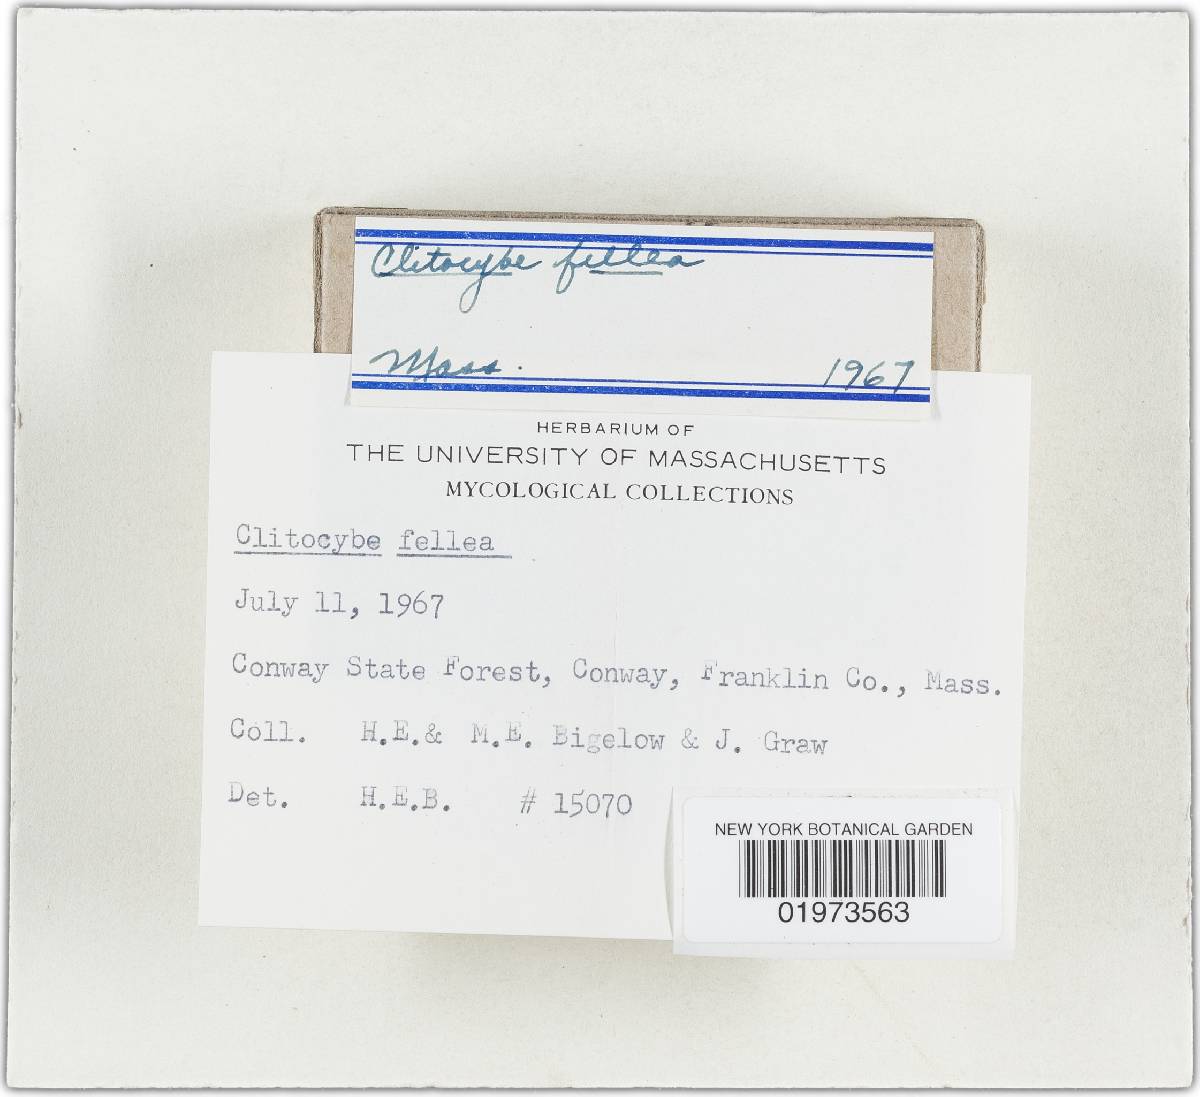 Clitocybe fellea
Mass. 1967
HERBARIUM OF
THE UNIVERSITY OF MASSACHUSETTS
MYCOLOGICAL COLLECTIONS
Clitocybe fellea
July 11, 1967
Conway State Forest, Conway, Franklin Co., Mass.
Coll. H.E.& M.E. Bigelow & J. Graw
Det. H.E.B. # 15070
NEW YORK BOTANICAL GARDEN
01973563